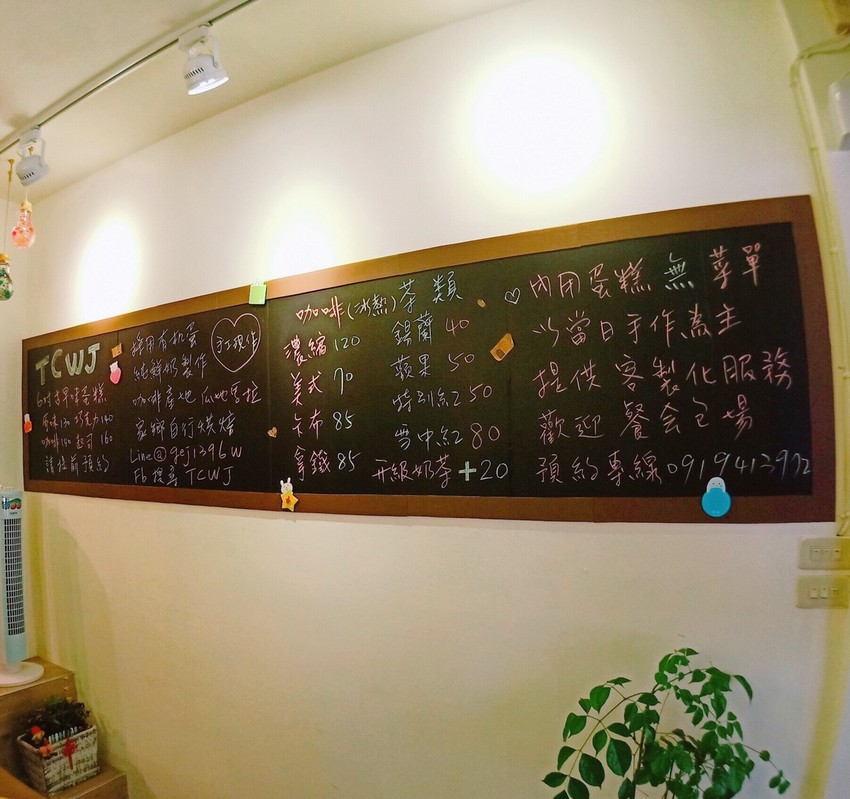 TCWJ
6吋古早味蛋糕
原味130 巧克力140
咖啡150 起司 160
請提前預約
採用有機蛋
純鮮奶製作
手工現作
咖啡產地 瓜地馬拉
家鄉自行烘焙
Line@gej1396w
Fb搜尋 TCWJ
咖啡(冰熱)
濃縮 120
美式 70
卡布 85
拿鐵 85
茶類
錫蘭 40
蘋果 50
特別紅 50
雪中紅 80
升級奶茶+20
內用蛋糕無菜單
以當日手作為主
提供客製化服務
歡迎餐会包場
預約專線